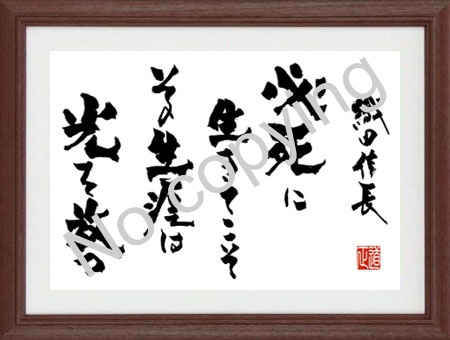 織田信長
必死に
生きてこそ
その生涯は
光を放つ
No copying